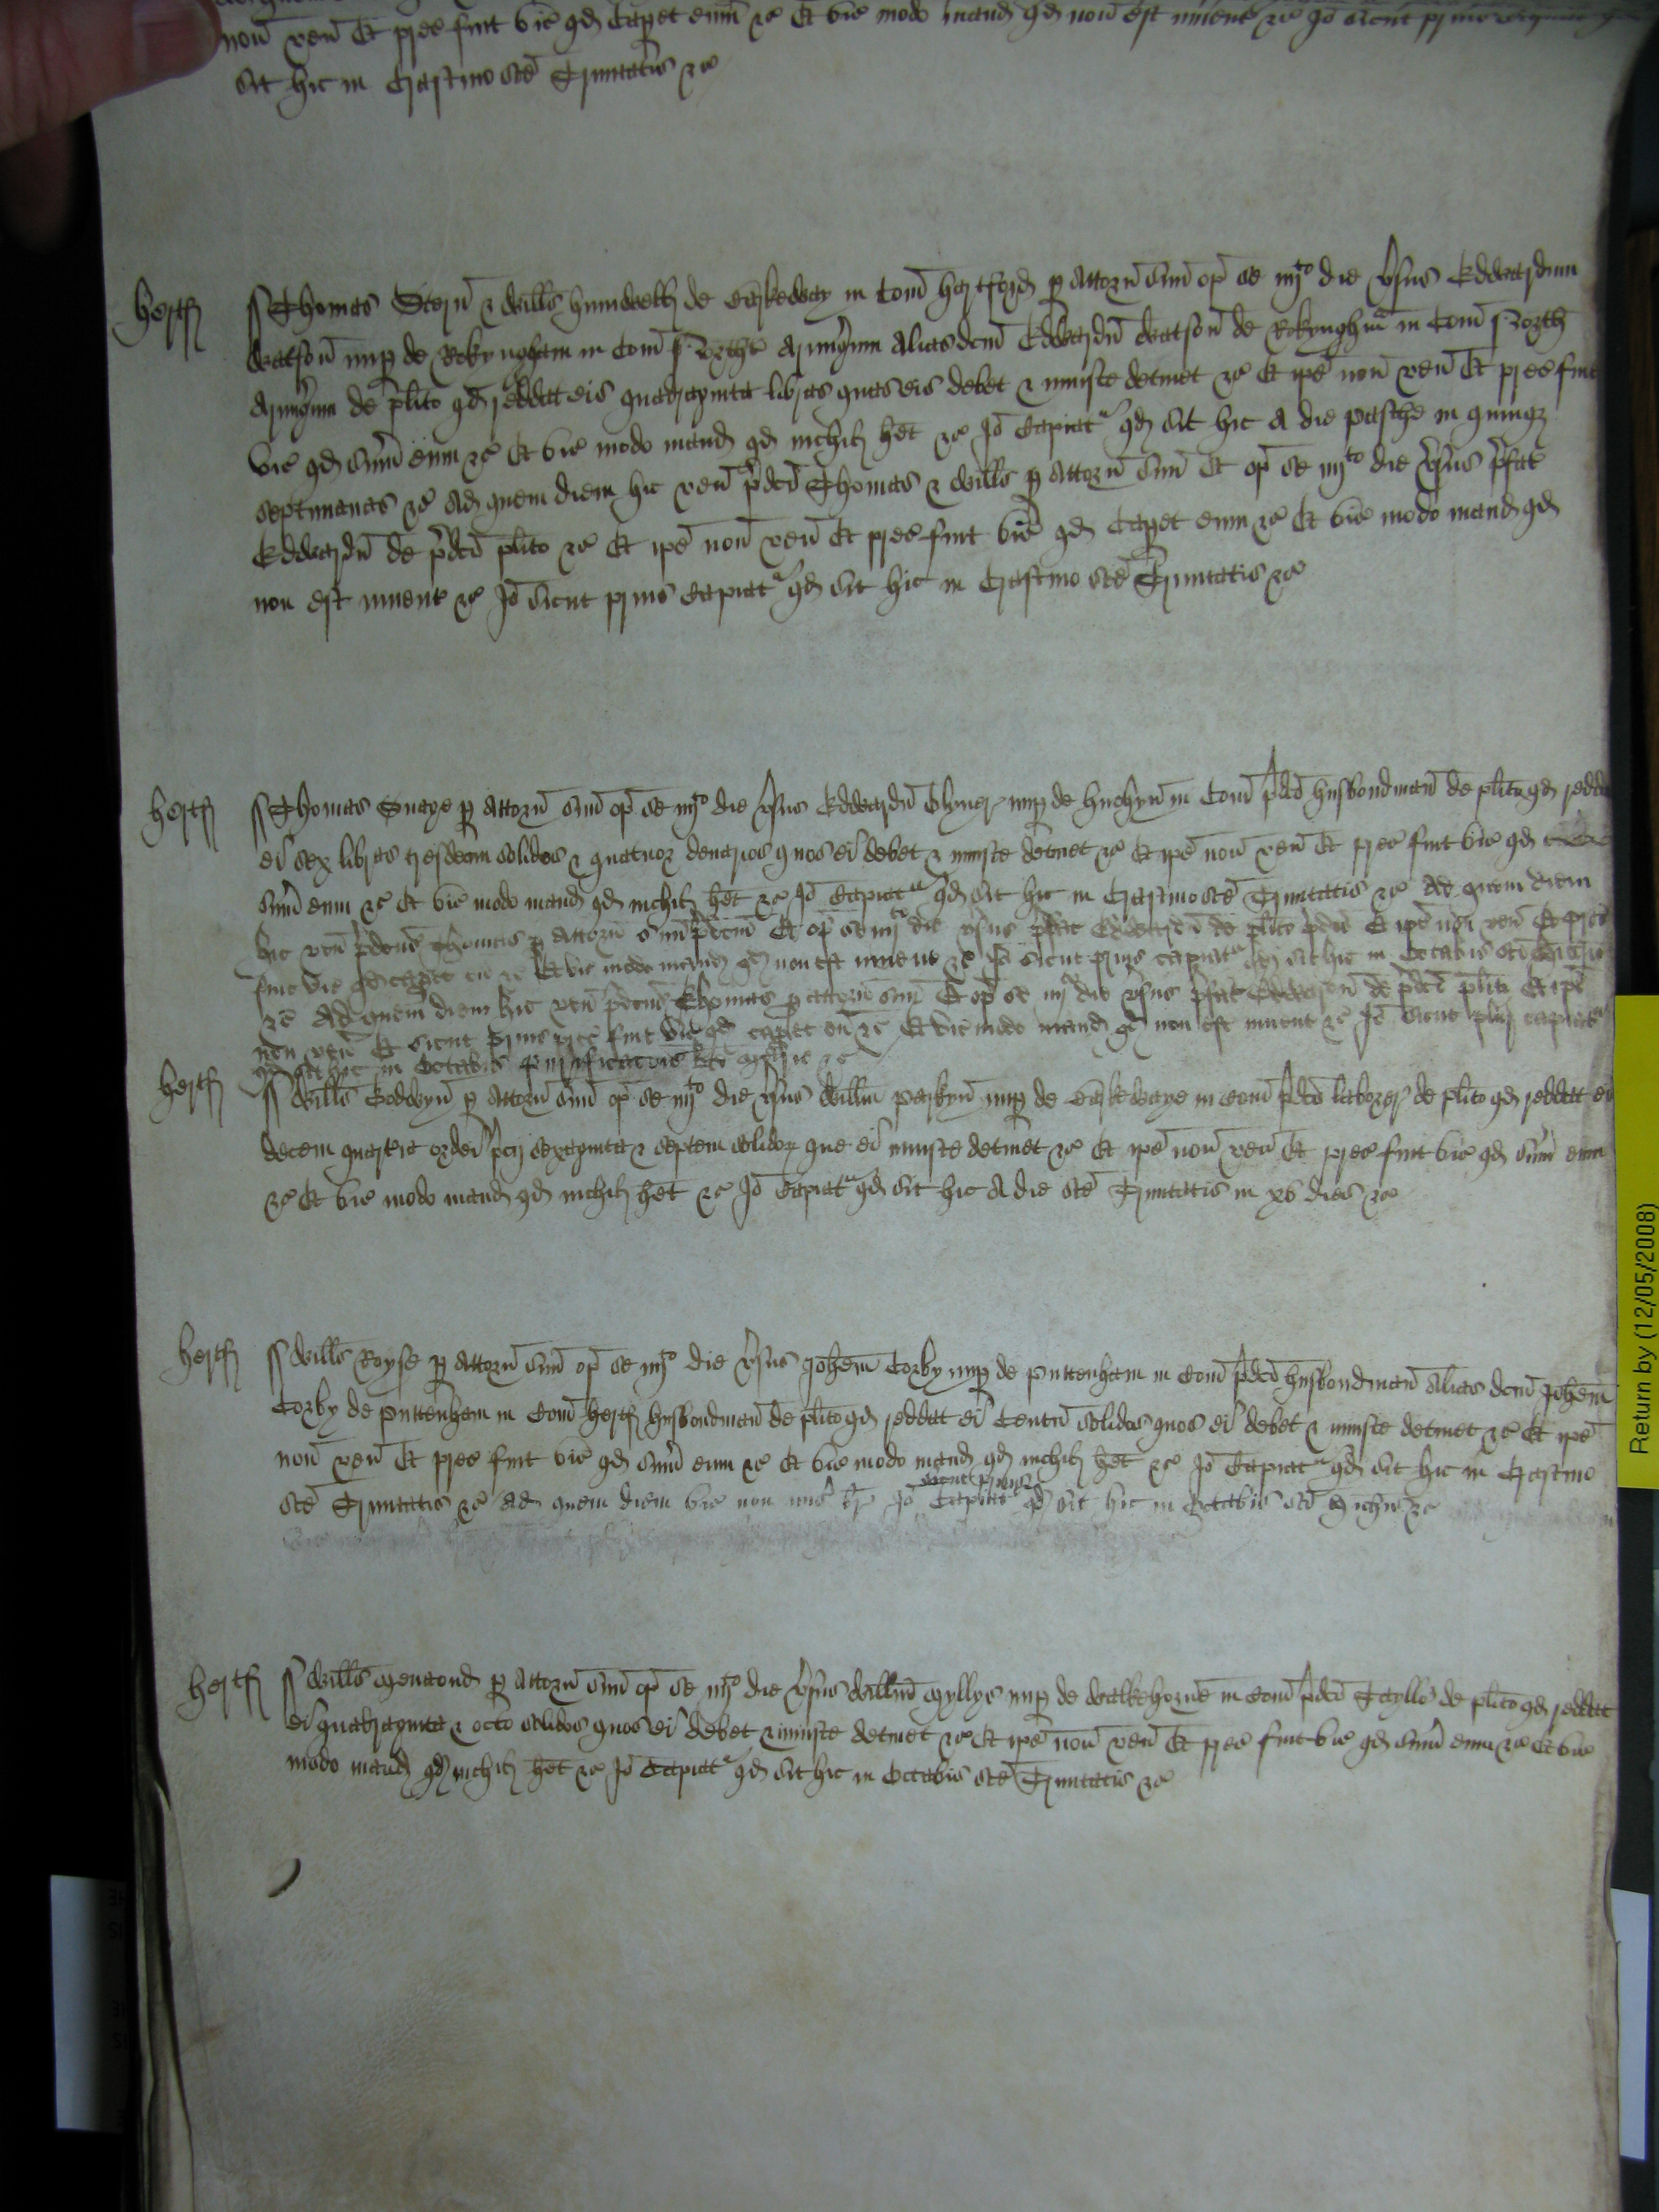 non veñ Et prec fuit vic qd Capet eum &c Et vic modo mand qd non est invent &c Jo sicut prius
sit hic in Crastino sce Trinitatis &c
Hertf
ss Thomas Stern & Wills hunwell de Barkeway in Com hertford p Attorn suu op se iiijto die vsus Edwardum
Watson nup de Rokyngham in Com Northt Armigum Alias dcm Edwardu Watson de Rokynghm in Com North
Armigum de plito qd reddat eis quadraginta libras quas eis debet & iniuste detinet &c Et ipe non ven Et prec fuit
vic qd sum eum &c Et vic modo mand qd nichil het &c Jo Capiatr qd sit hic A die pasche in quinqz
septimanas &c Ad quem diem hic ven pdci Thomas & Wills p Attorn suu Et op se iiijto die vsus pfat
Edwardu de pdco plito &c Et ipe non ven Et prec fuit vic qd Capet eum &c Et vic modo mand qd
non est invent &c Jo sicut prius capiatr qd sit hic in Crastino sce Trinitatis &c
Hertf
ss Thomas Snage p Attorn suu op se iiijto die vsus Edwardu nup de huchyn in Com pdco husbondman de plito qd redd
ei sex libras tresdecim solidos & quatuor denarios quos ei debet & iniuste detinet &c Et ipe non ven Et prec fuit vic qd
sum eum &c Et vic modo mand qd nichil het &c Jo Capiatr qd sit hic in Crastino sce Trinitatis &c Ad quem diem
hic ven pdcus Thomas p Attorn suu pdcm Et op se iiijto die vsus pfat Edwardu de plito pdco Et ipe non ven Et prec
fuit vic qd capet eu &c Et vic modo mand qd non est invent &c Jo sicut prius capiatr qd sit hic in Octabis sci
&c Ad quem diem hic ven pdcus Thomas p attorn suu Et op se iiijto die vsus pfat Edwardu de pdco plito Et ipe
non ven Et sicut prius prec fuit vic qd capet eu &c Et vic modo mand qd non est invent &c Jo sicut plur capiatr
qd sit hic in Octabis purificacois bte marie &c
Hertf
ss Wills Godwyn p Attorn suu op se iiijto die vsus Willm parkyn nup de Barkewaye in com pdco laborer de plito qd reddat ei
decem quarteria ordei pcij sexaginta & septem solidor que ei iniuste detinet &c Et ipe non ven Et prec fuit vic qd sum eum
&c Et vic modo mand qd nichil het &c Jo Capiatr qd sit hic A die sce Trinitatis in xv dies &c
Hertf
ss Wills Royse p Attorn suu op se iiijto die vsus Johem Corby nup de puttenham in com pdco husbondman Alias dcm Johem
Corby de puttenham in Com Hertf husbondman de plito qd reddat ei Centu solidos quos ei debet & iniuste detinet &c Et ipe
non ven Et prec fuit vic qd sum eum &c Et vic modo mand qd nichil het &c Jo Capiatr qd sit hic in Crastino
sicut prius
sce Trinitatis &c Ad quem diem vic non mis br Jo Capiatr qd sit hic in Octabis sci Michis &c
Hertf
ss Wills p Attorn suu op se iiijto die vsus Willm Gyllys nup de Walkehorne in com pdco Tayllo de plito qd reddat
ei quadraginta & octo solidos quos ei debet & iniuste detinet &c Et ipe non ven Et prec fuit vic qd sum eum &c Et vic
modo mand qd nichil het &c Jo Capiatr qd sit hic in Octabis sce Trinitatis &c
Return by (12/05/2008)